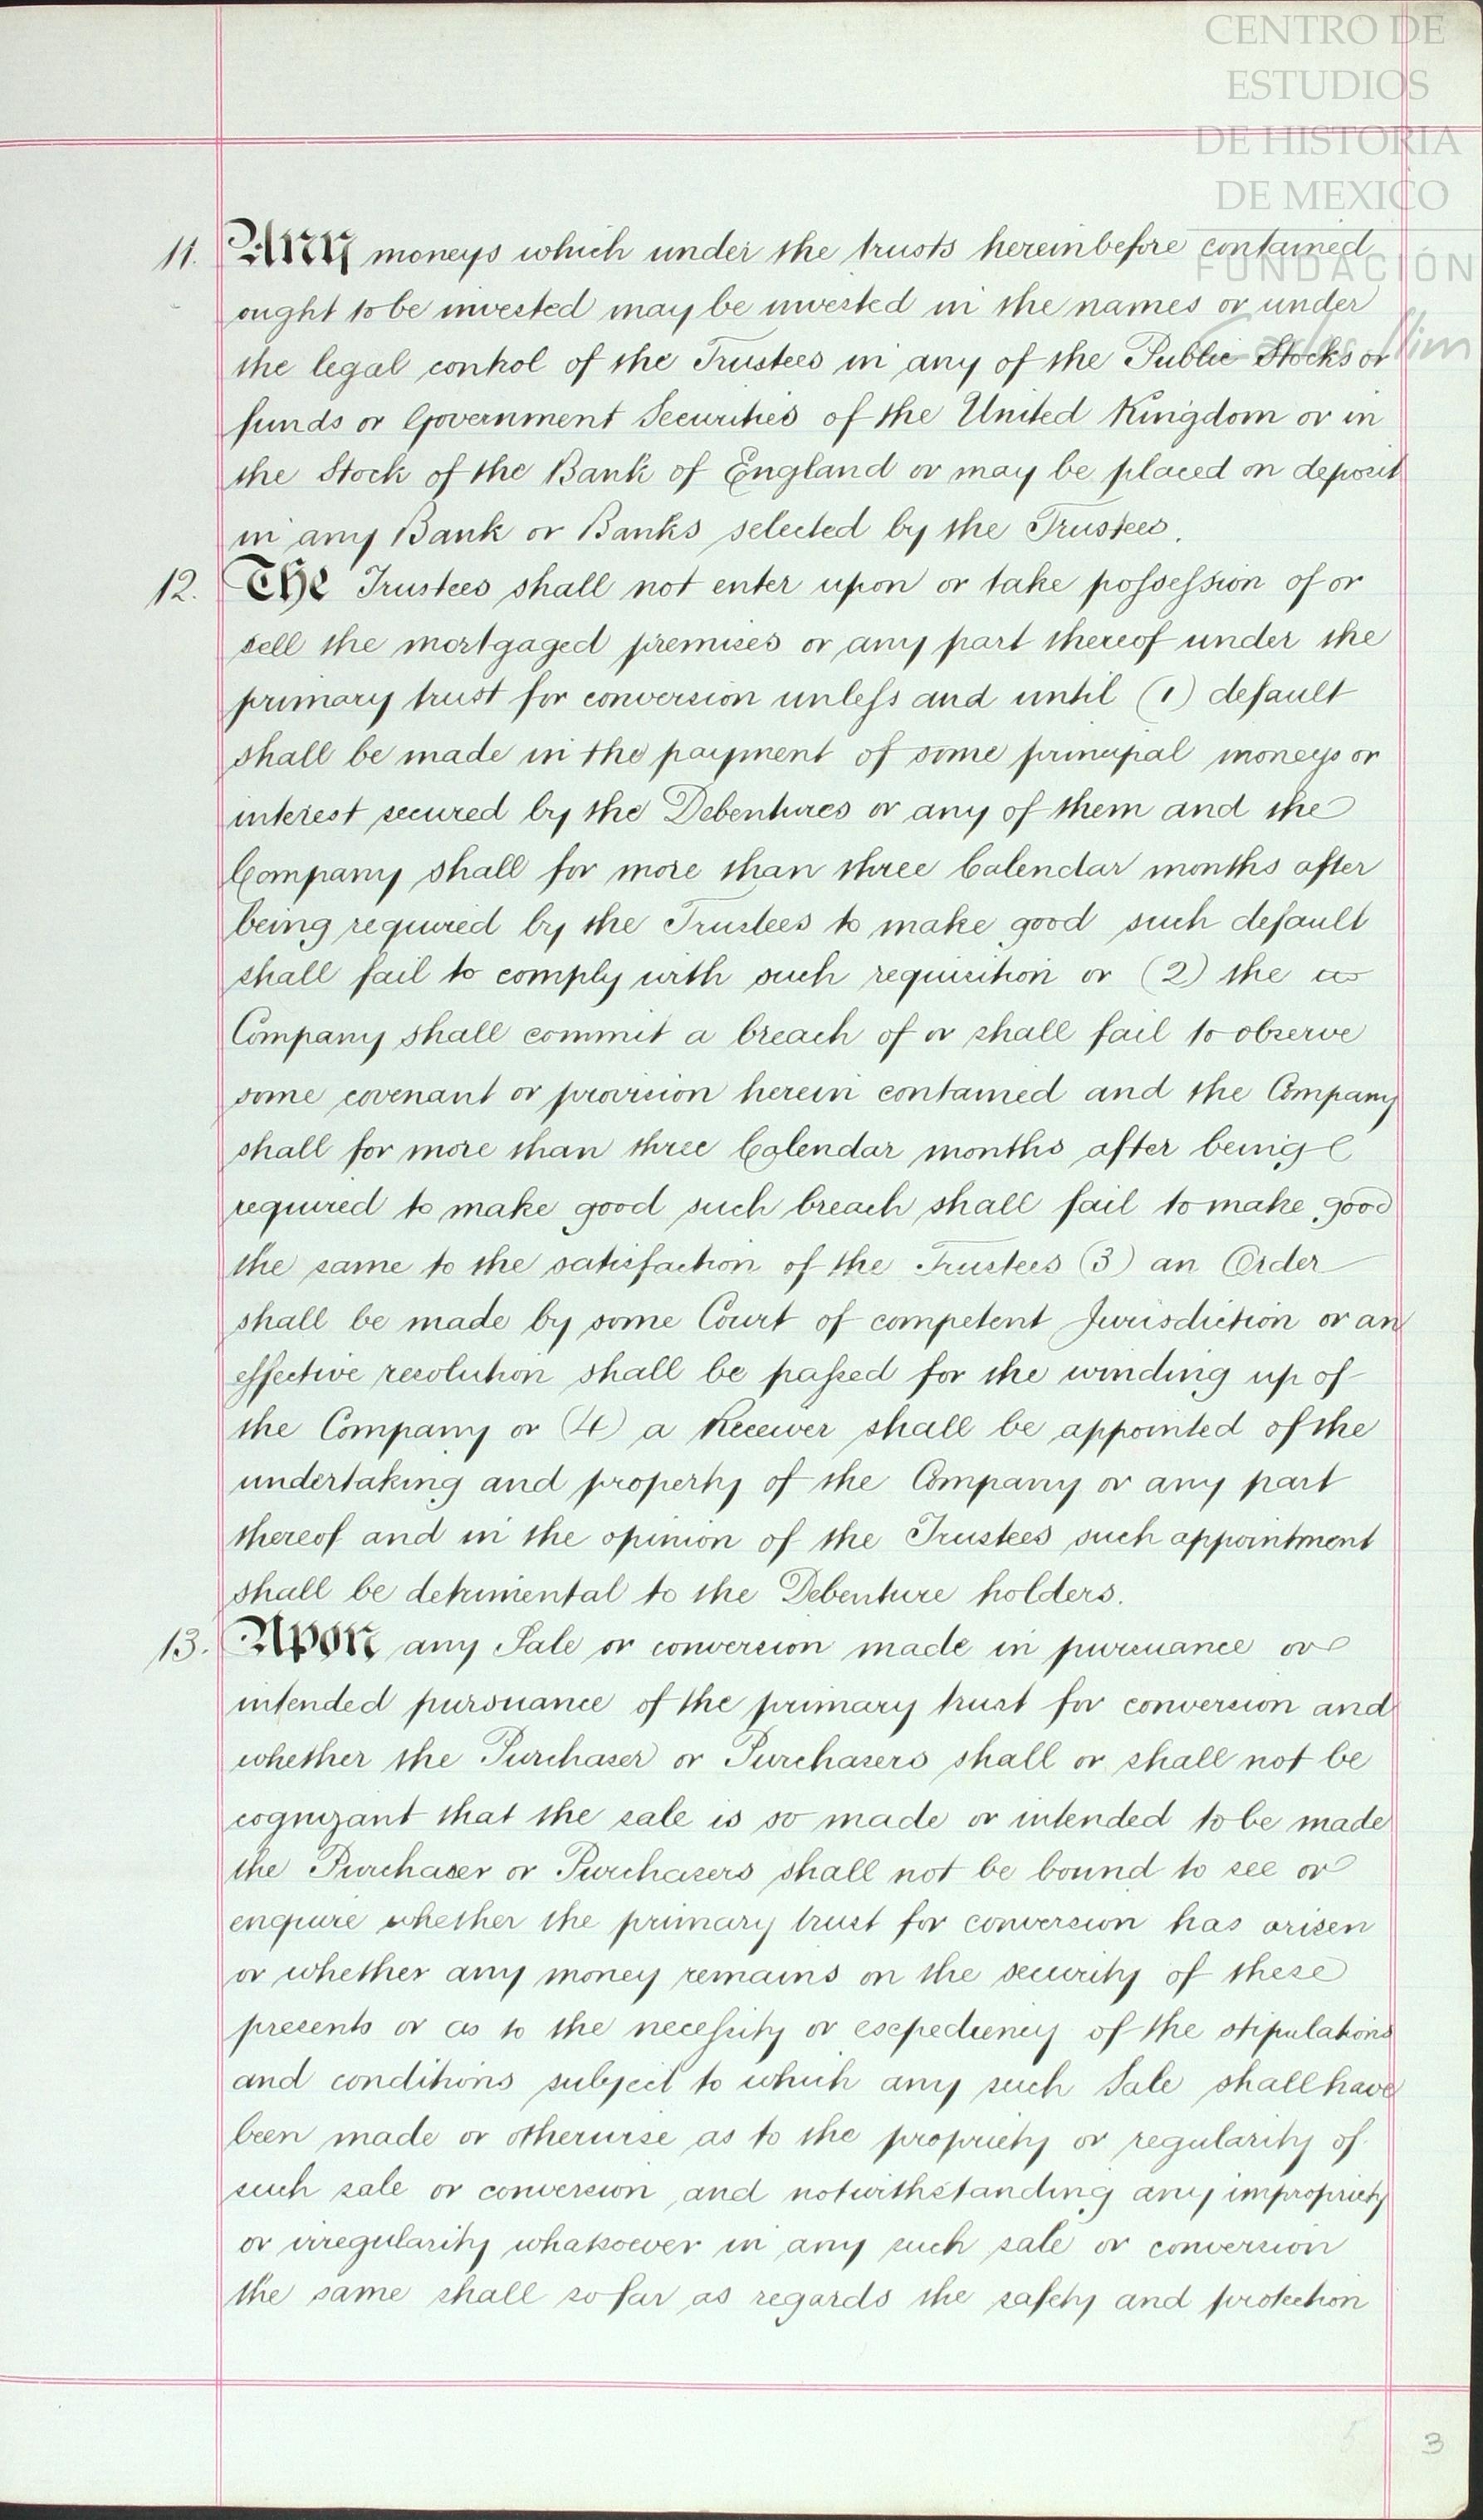 CENTRO DE
ESTUDIOS
DE HISTORIA
DE MEXICO
FUNDACIÓN
Carlos Slim
11. Any moneys which under the trusts hereinbefore contained
ought to be invested may be invested in the names or under
the legal control of the Trustees in any of the Public Stocks or
funds or Government Securities of the United Kingdom or in
the Stock of the Bank of England or may be placed on deposit
in any Bank or Banks selected by the Trustees.
12. The Trustees shall not enter upon or take possession of or
sell the mortgaged premises or any part thereof under the
primary trust for conversion unless and until (1) default
shall be made in the payment of some principal moneys or
interest secured by the Debentures or any of them and the
Company shall for more than three Calendar months after
being required by the Trustees to make good such default
shall fail to comply with such requisition or (2) the
Company shall commit a breach of or shall fail to observe
some covenant or provision herein contained and the Company
shall for more than three Calendar months after being
required to make good such breach shall fail to make good
the same to the satisfaction of the Trustees (3) an Order
shall be made by some Court of competent Jurisdiction or an
effective resolution shall be passed for the winding up of
the Company or (4) a Receiver shall be appointed of the
undertaking and property of the Company or any part
thereof and in the opinion of the Trustees such appointment
shall be detrimental to the Debenture holders.
13. Upon any Sale or conversion made in pursuance or
intended pursuance of the primary trust for conversion and
whether the Purchaser or Purchasers shall or shall not be
cognizant that the sale is so made or intended to be made
the Purchaser or Purchasers shall not be bound to see or
enquire whether the primary trust for conversion has arisen
or whether any money remains on the security of these
presents or as to the necessity or expediency of the stipulations
and conditions subject to which any such Sale shall have
been made or otherwise as to the propriety or regularity of
such sale or conversion and notwithstanding any impropriety
or irregularity whatsoever in any such sale or conversion
the same shall so far as regards the safety and protection
3